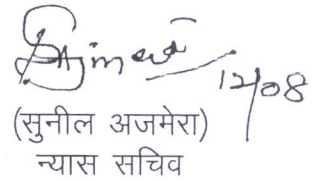 12/08
(सुनील अजमेरा)
न्यास सचिव